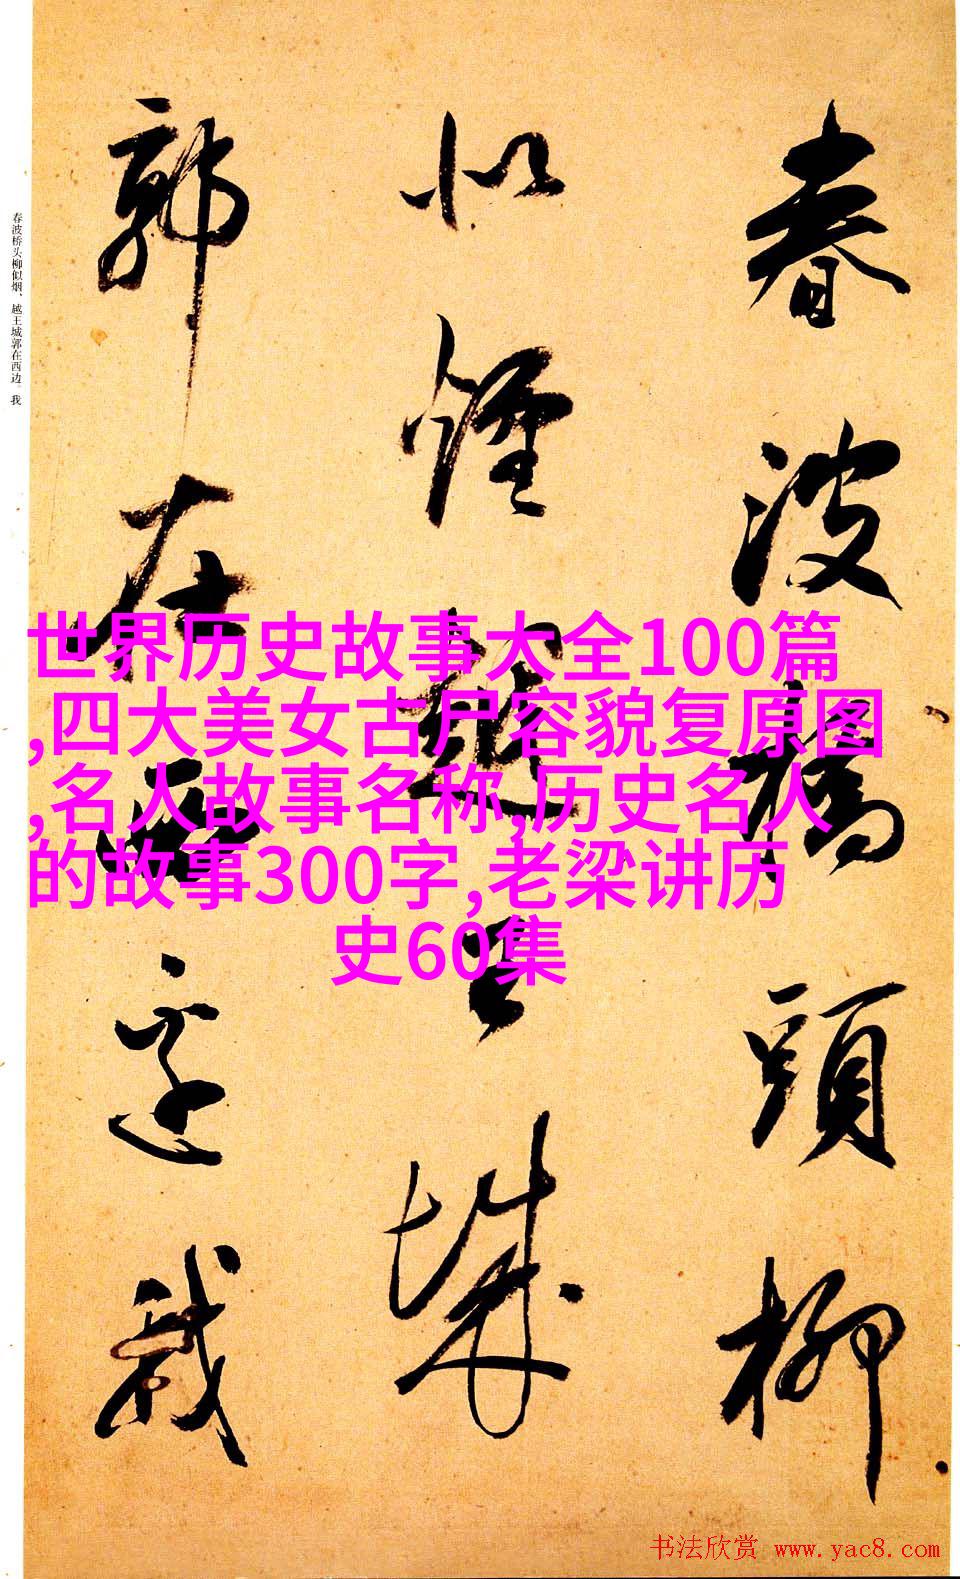 春波橋頭柳
似煙越王城
郭在西邊我
春波桥头柳似烟、越王城郭在西边。我
世界历史故事大全100篇
,四大美女古尸容貌复原图
,名人故事名称,历史名人
的故事300字,老梁讲历
史60集
书法欣赏 www.yac8.com